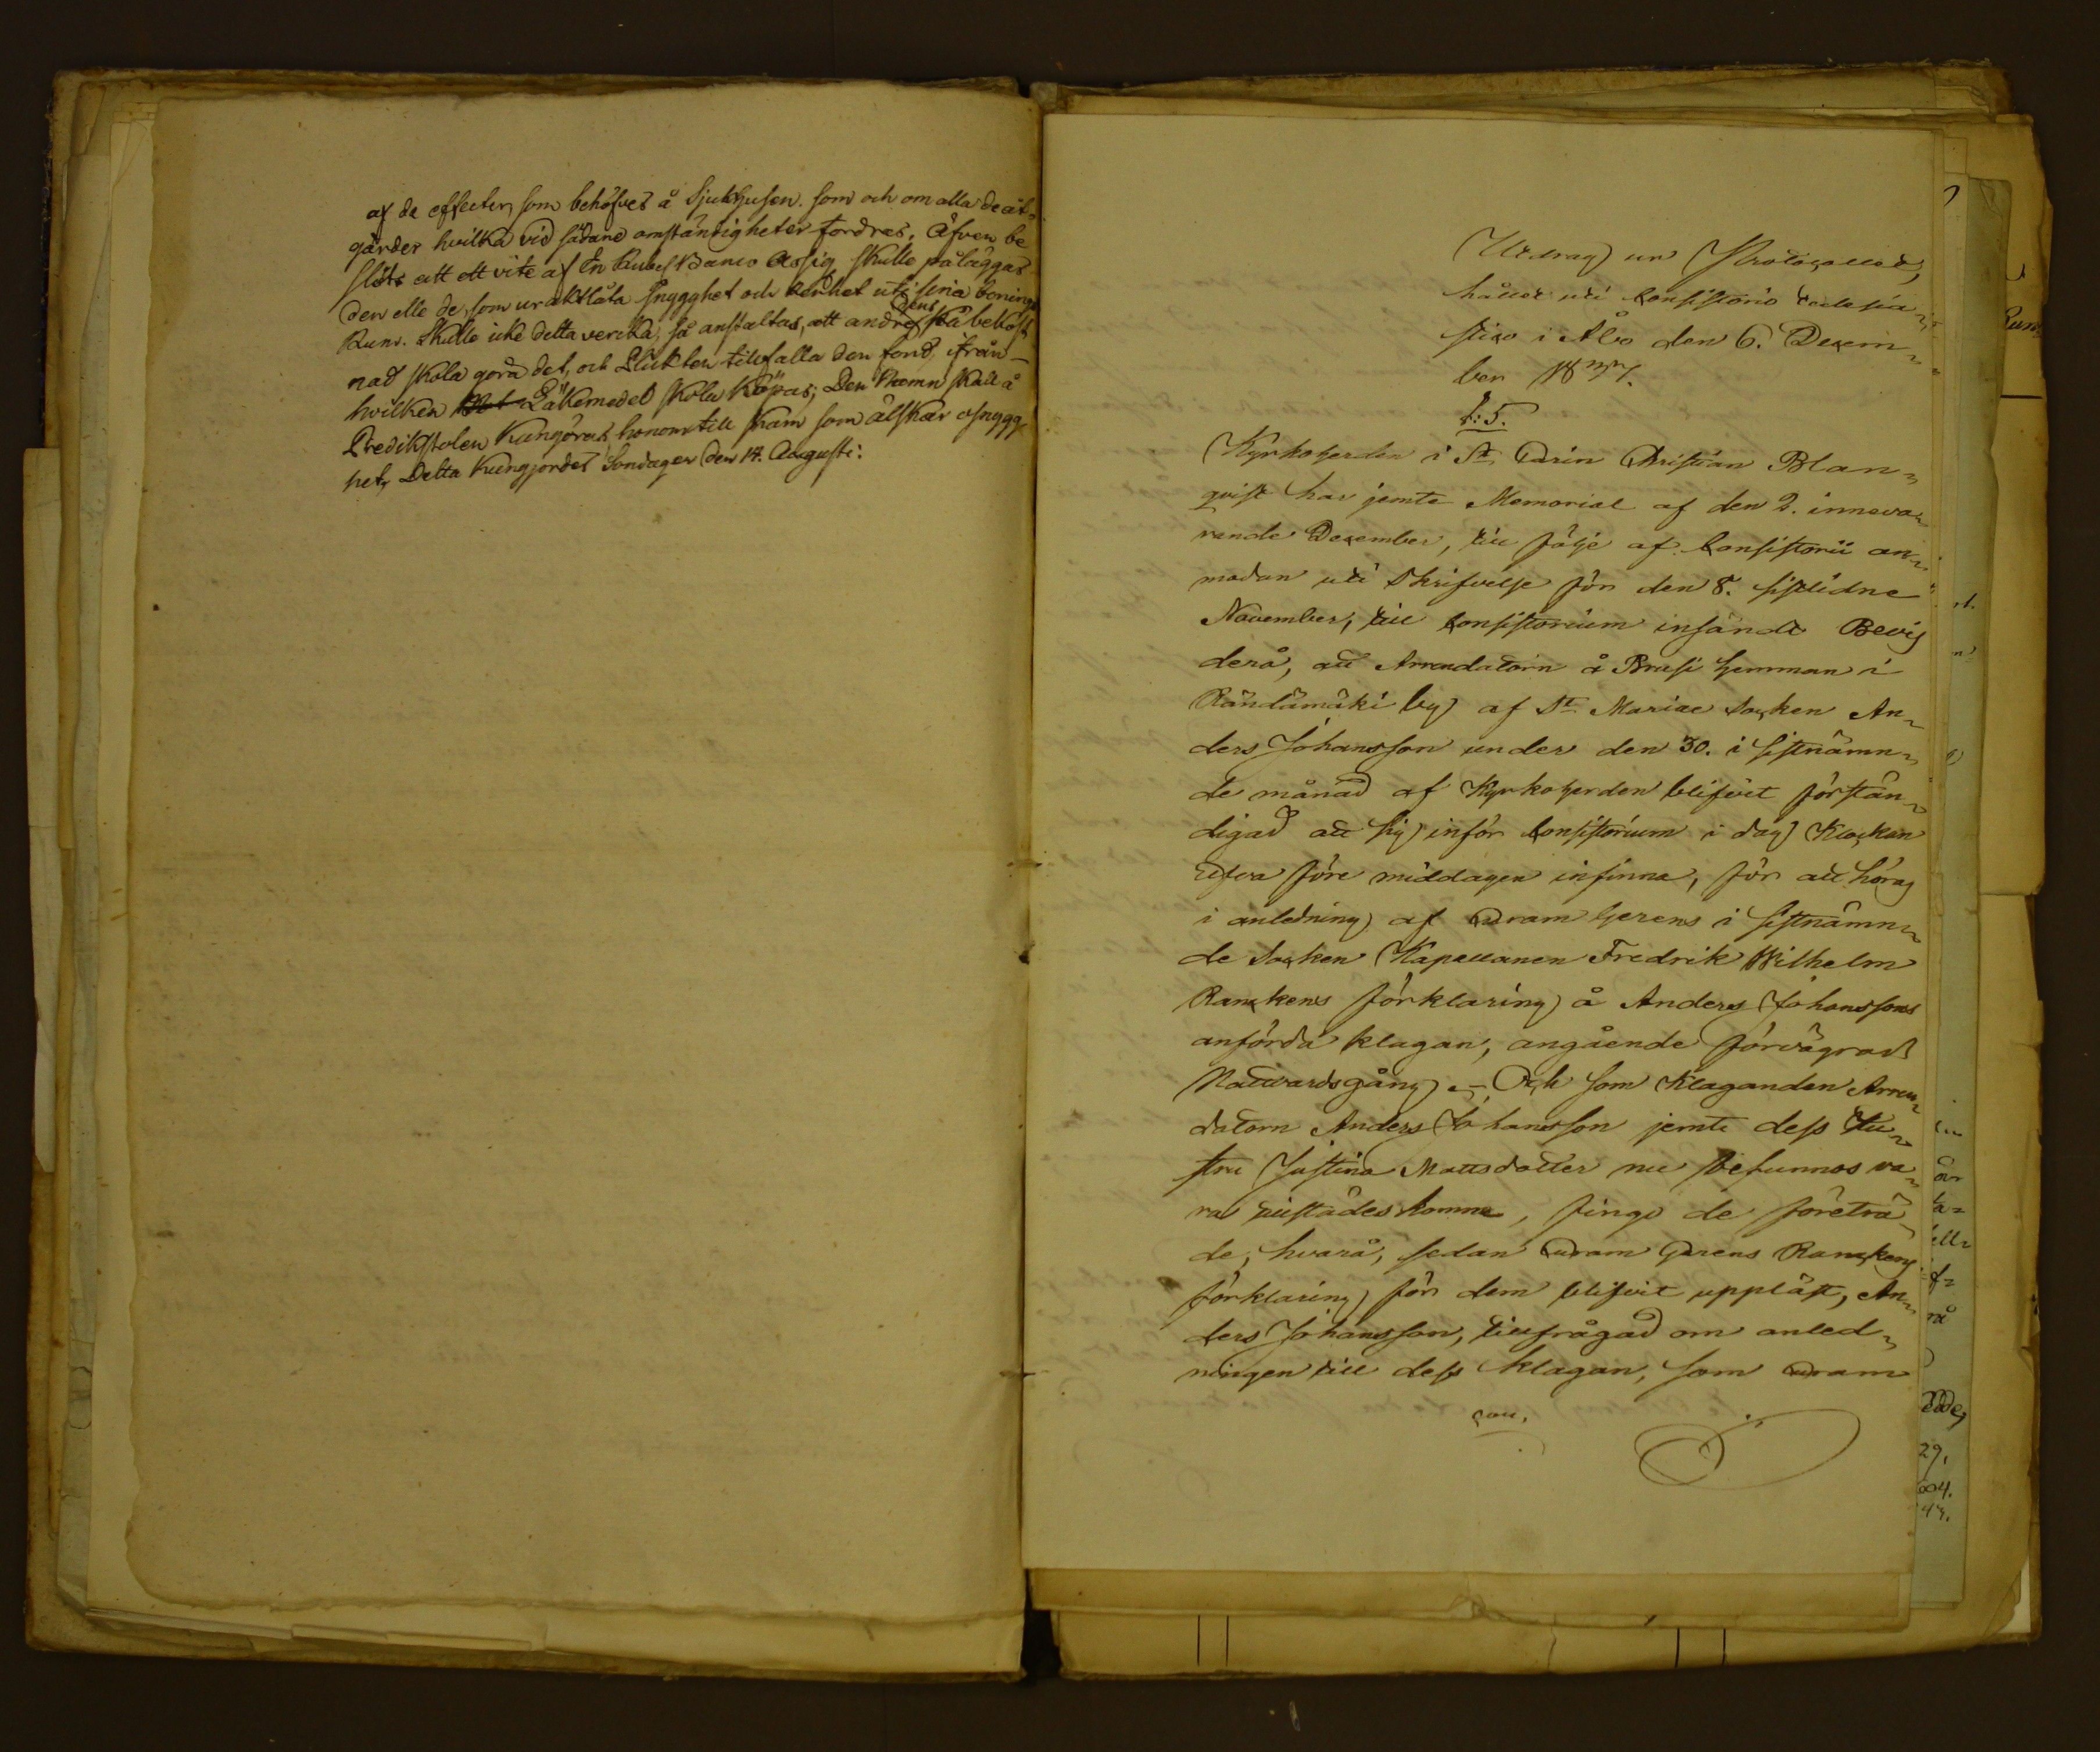 af de effecter som behöfves å Sjukhusen. som och om alla de åt-
gärder hvilka vid sådane omständigheter fordras. Äfven be
slöts att ett vite af En Rubel Banco Assig skulle påläggas
den elle de, som uraktlåta snygghet och renhet uti sina bonings
Rum. Skulle icke detta verka, så anstaltas, att andre på bekost
dens
nad skola göra det, och Plikten tillfalla den fond, ifrån
hvilken Läkemedel skola Köpas; Den Namn skall å
Predikstolen Kungöras, honom till skam som älskar osnygg
het, Detta Kungjordes Söndagen den 14. Augusti.
Utdrag ur Protocollet,
hållet uti Consistorio Ecclesia-
stico i Åbo den 6. Decem-
ber
§: 5.
Kyrkoherden i St. Carin Christian Blan-
qvist har jemte Memorial af den 2. inneva-
rande December, till följe af Consistorii an-
modan uti Skrifvelse för den 8. sistlidne
November, till Consistorium insändt Bevis
derå, att Arrendatorn å Brusi Hemman i
Räntämäki by af St. Mariae Socken An-
ders Johansson under den 30. i sistnämn-
de månad af Kyrkoherden blifvit förstän-
digad att sig inför Consistorium i dag Klockan
elfva före middagen infinna, för att höras
i anledning af Vice Pastorns i sistnämn-
de Socken Kapellanen Fredrik Wilhelm
Ranckens förklaring å Anders Johanssons
anförda klagan, angående förvägrad
Nattvardsgång. – Och som Klaganden Arren-
datorn Anders Johansson jemte dess Hu-
stru Justina Mattsdotter nu befunnos va-
ra tillstädeskomne, fingo de företrä-
de, hvarå, sedan Ranckens
förklaring för dem blifvit uppläst, An-
ders Johansson, tillfrågad om anled-
ningen till dess klagan, som